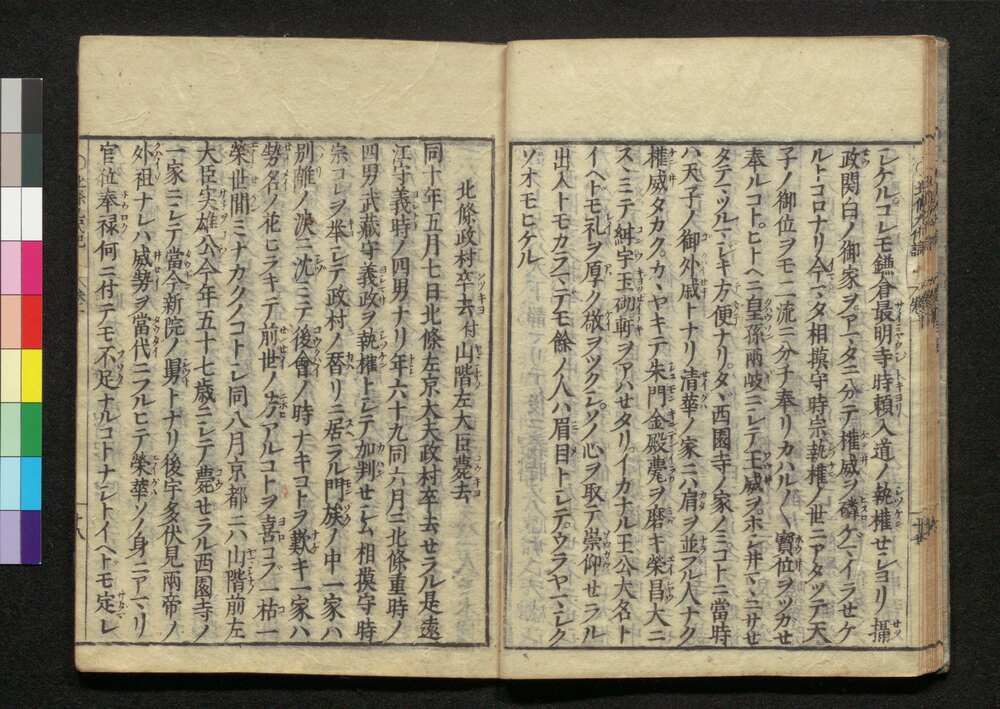 シケルコレモ鎌倉最明寺時頼入道ノ執權セシヨリ攝
政関白ノ御家ヲアマタニ分テ權威ヲ磷ゲマイラセケ
ルトコロナリ今マタ相摸守時宗執權ノ世ニアタツテ天
子ノ御位ヲモ二流ニ分チ奉リカハル〱寶位ヲツカセ
奉ルコトヒトヘニ皇孫兩岐ニシテ王威ヲホシ井マヽニサセ
タテマツルマシキ方便ナリタヾ西園寺ノ家ノミコトニ當時
ハ天子ノ御外戚トナリ清華ノ家ニハ肩ヲ並フル人ナク
權威タカクカヽヤキテ朱門金殿甍ヲ磨キ榮昌大ニ
スヽミテ紺宇玉砌軒ヲアハセタリイカナル王公大名ト
イヘトモ礼ヲ厚ク敬ヲツクシソノ心ヲ取テ崇仰セラル
出入トモカラマデモ餘ノ人ハ眉目トシテウラヤマシク
ソオモヒケル
北條政村卒去付山階左大臣薨去
同十年五月七日北條左京大夫政村卒去セラル是遠
江守義時ノ四男ナリ年六十九同六月ニ北條重時ノ
四男武藏守義政ヲ執權トシテ加判セシム相摸守時
宗コレヲ举シテ政村ノ替リニ居ラル門族ノ中一家ハ
別離ノ涙ニ沈ミテ後會ノ時ナキコトヲ歎キ一家ハ
勢名ノ花ヒラキテ前世ノ芳アルコトヲ喜コフ一枯一
榮世間ミナカクノコトシ同八月京都ニハ山階前左
大臣実雄公今年五十七歳ニシテ薨セラル西園寺ノ
一家ニシテ當今新院ノ舅トナリ後宇多伏見兩帝ノ
外祖ナレハ威勢ヲ當代ニフルヒテ榮華ソノ身ニアマリ
官位奉禄何ニ付テモ不足ナルコトナシトイヘトモ定レ